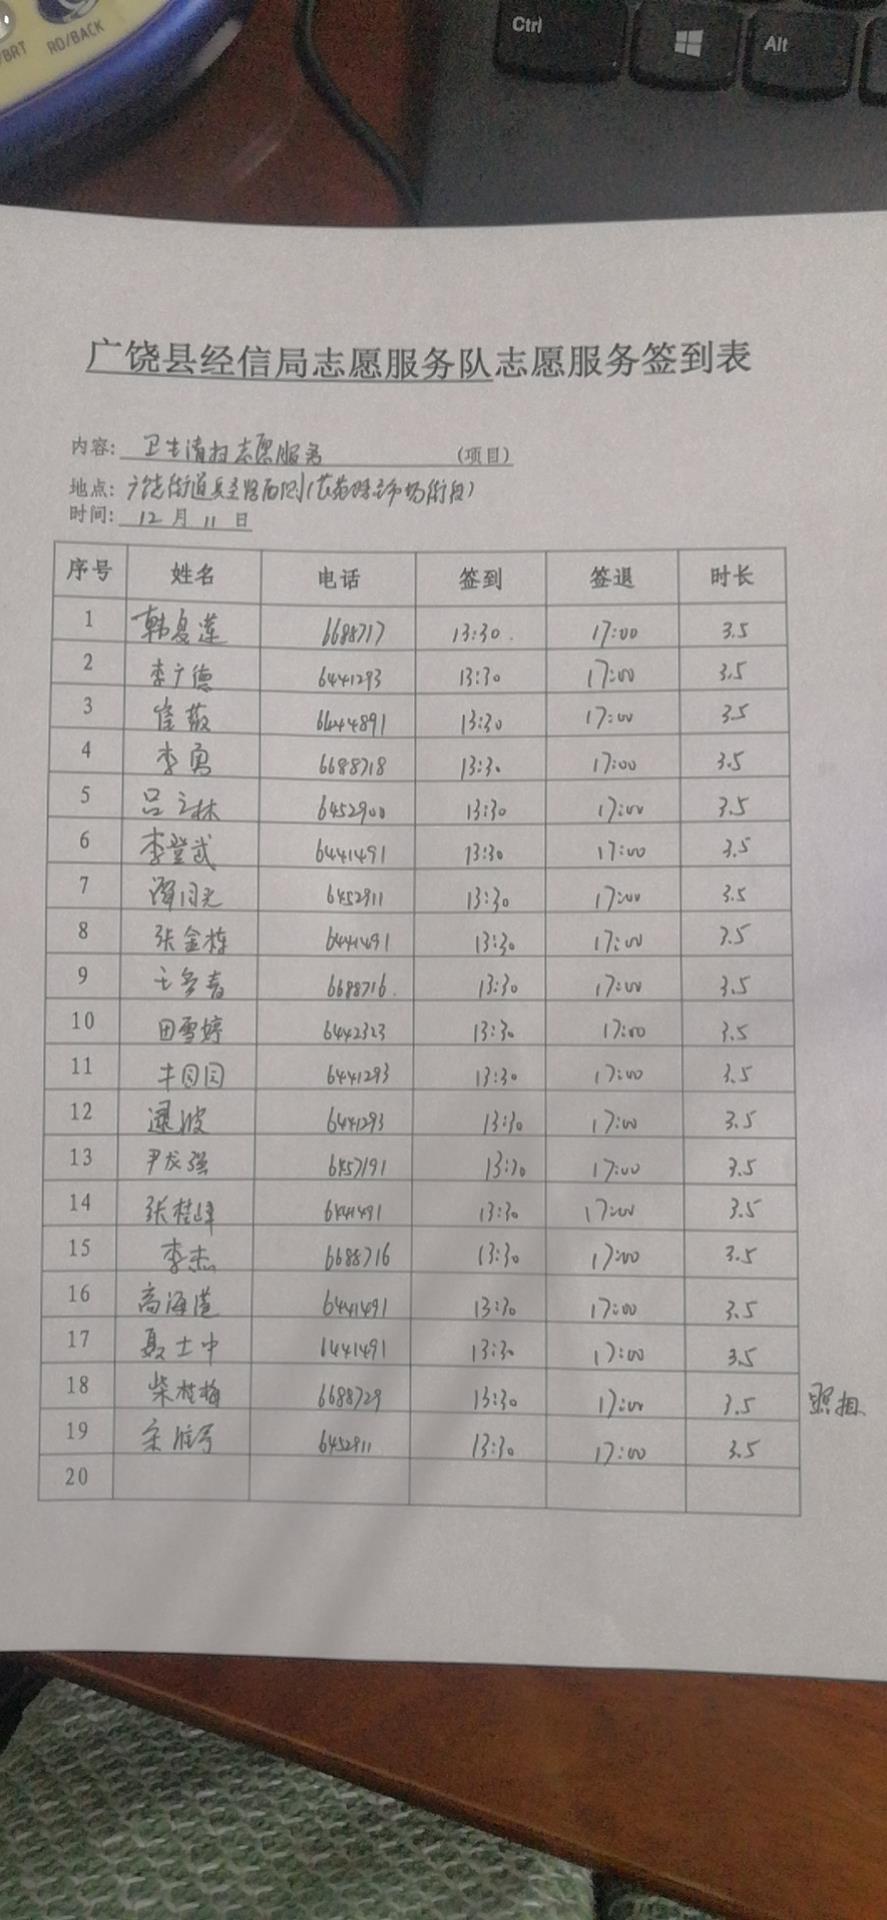 /BRT
RD/BACK
Ctrl
Alt
广饶县经信局志愿服务队志愿服务签到表
内容: 卫生清扫志愿服务 (项目)
地点: 广饶街道
时间: 12 月 11 日
序号 姓名 电话 签到 签退 时长
1 韩复莲 6688717 13:30. 17:00 3.5
2 李广德 6441293 13:30 17:00 3.5
3 崔敬 6444891 13:30 17:00 3.5
4 李勇 6688718 13:30 17:00 3.5
5 吕立林 6452900 13:30 17:00 3.5
6 李登武 6441491 13:30 17:00 3.5
7 6452911 13:30 17:00 3.5
8 张金栋 6441491 13:30 17:00 3.5
9 6688716. 13:30 17:00 3.5
10 田雪婷 6442323 13:30 17:00 3.5
11 6441293 13:30 17:00 3.5
12 逯波 6441293 13:30 17:00 3.5
13 尹成强 6457191 13:30 17:00 3.5
14 张桂峰 6441491 13:30 17:00 3.5
15 李杰 6688716 13:30 17:00 3.5
16 高海莲 6441491 13:30 17:00 3.5
17 聂士中 6441491 13:30 17:00 3.5
18 柴桂梅 6688729 13:30 17:00 3.5 照相
19 6452911 13:30 17:00 3.5
20